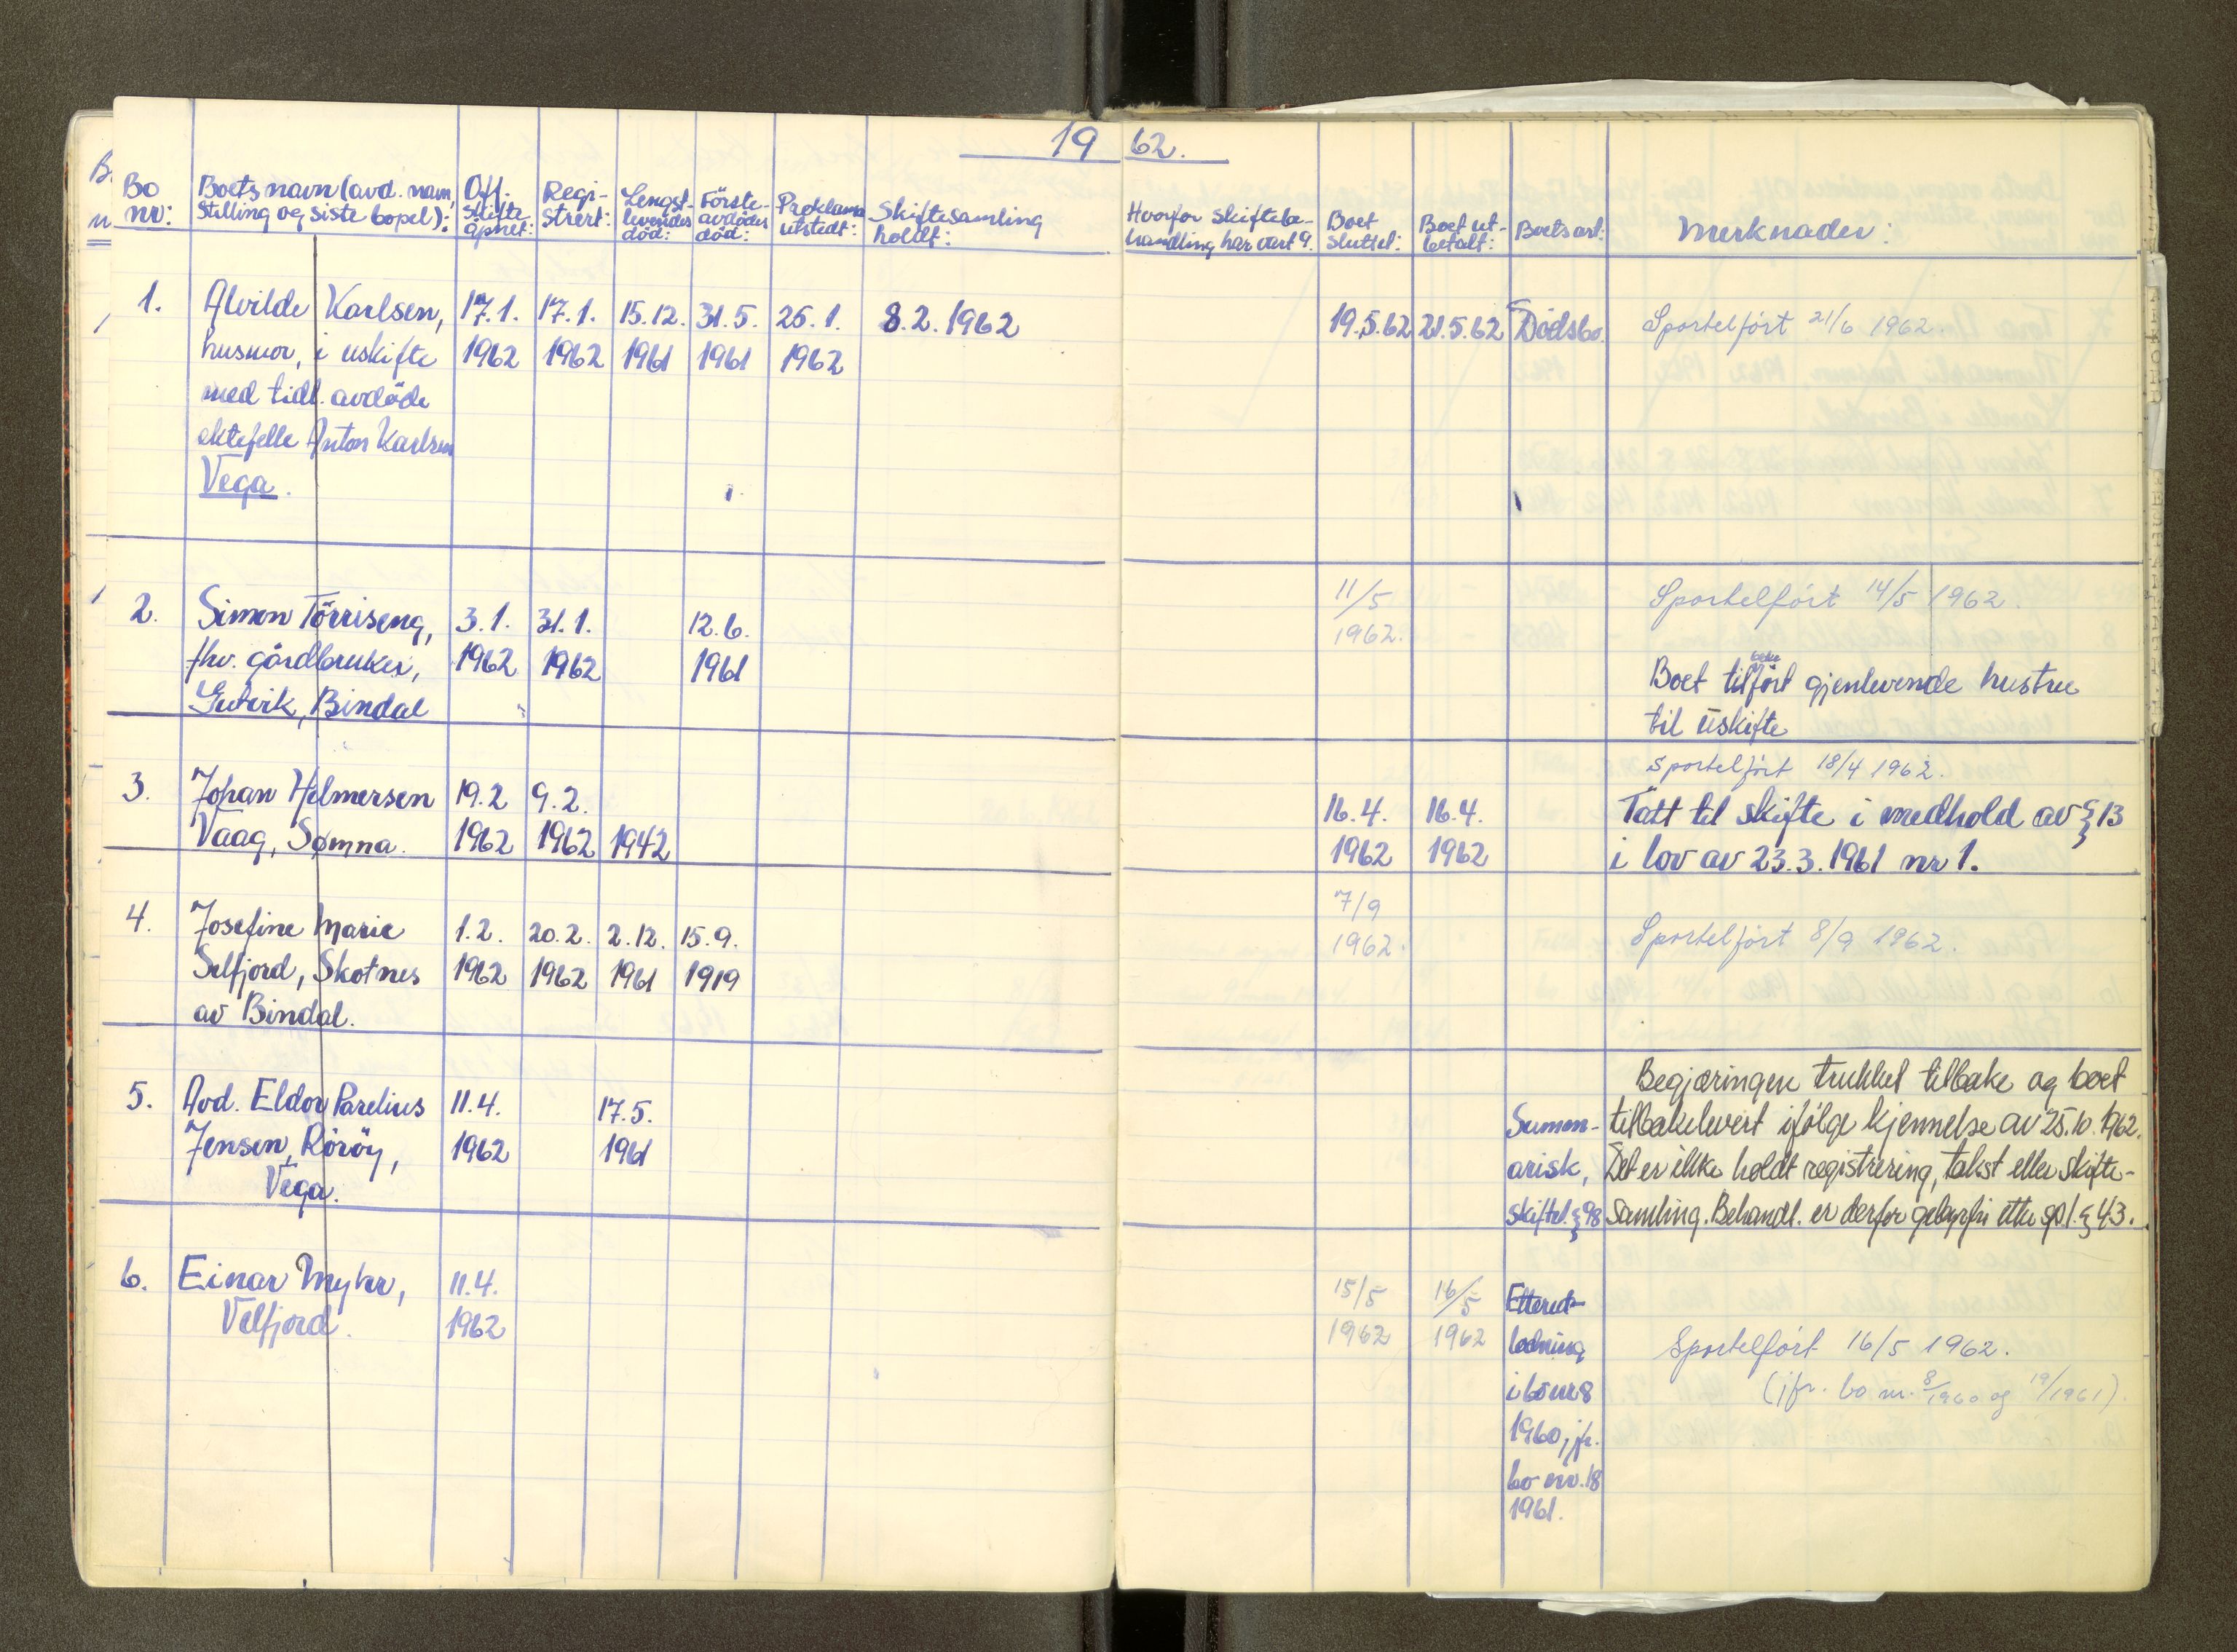 1962.
Bo nr: Boets navn (avd. navn, stilling og siste bopel): Off. skifte åpnet: Regi-strert: Lengst-levendes död: Förste-avdödes död: Proklama utstedt: Skiftesamling holdt: Hvorfor skiftebe-handling har vart Boet sluttet: Boet ut-betalt: Boets art: Merknader:
1. Alvilde Karlsen, 17.1. 17.1. 15.12. 31.5. 25.1. 8.2.1962 19.5.62 21.5.62 Dödsbo. Sportelfört 21/6 1962.
husmor, i uskifte 1962 1962 1961 1961 1962
med tidl. avdöde
ektefelle Anton Karlsen
Vega.
2. Simon Törriseng, 3.1. 31.1. 12.6. 11/5 Sportelfört 14/5 1962.
fhv. gårdbruker, 1962 1962 1961 1962. Boet tilfört gjenlevende hustru
Gutvik, Bindal til uskifte
Sportelfört 18/4 1962.
3. Johan Helmersen 19.2 9.2. 16.4. 16.4. Tatt til skifte i medhold av § 13
Vaag, Sømna. 1962 1962 1942 1962 1962 i lov av 23.3.1961 nr 1.
4. Josefine Marie 1.2. 20.2. 2.12. 15.9. 7/9 Sportelfört 8/9 1962.
Selfjord, Skotnes 1962 1962 1961 1919 1962.
av Bindal.
Begjæringen trukket tilbake og boet
5. Avd. Eldor Parelius 11.4. 17.5. Summ- tilbakelevert ifölge kjennelse av 25.10.1962.
Jensen, Röröy, 1962 1961 arisk, Det er ikke holdt registrering, takst eller skifte-
Vega. skiftel. § 98 samling. Behandl. er derfor gebyrfri etter spl. § 43.
6. Einar Myhr, 11.4. 15/5 16/5 Etterut-
Velfjord. 1962 1962 1962 lodning Sportelfört 16/5 1962.
i bo nr 8 (jfr. bo nr. 8/1960 og 19/1961).
1960, jfr.
bo nr. 18
1961.